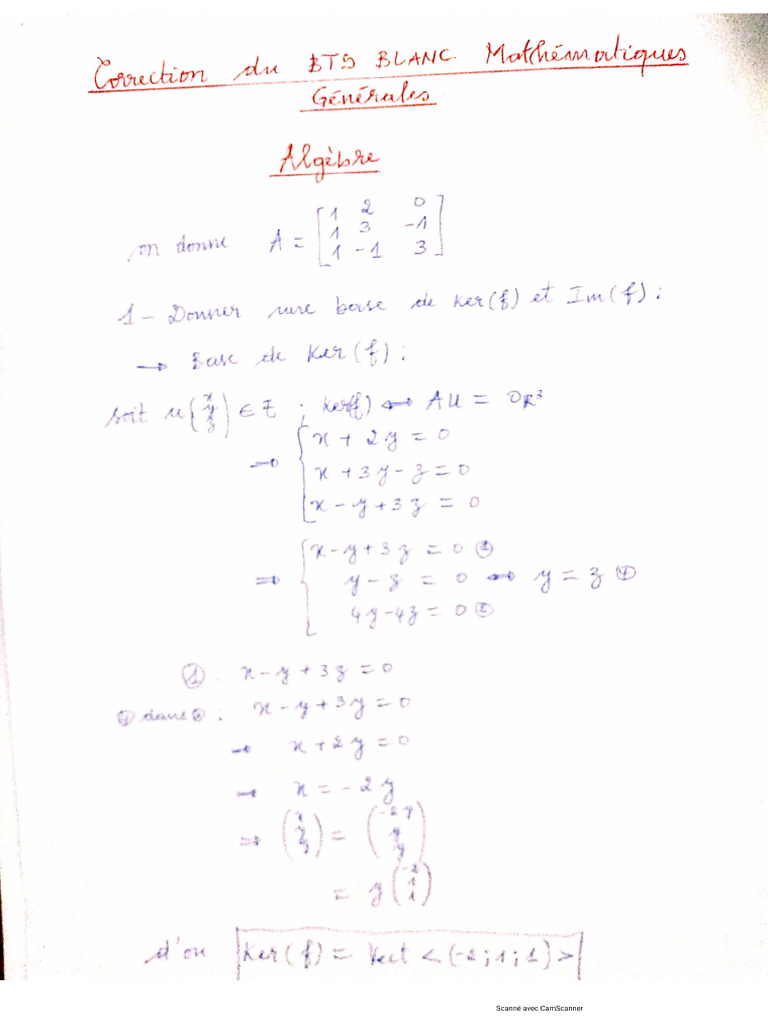 Correction du BTS BLANC Mathématiques
Générales
Algèbre
on donne A = [1 2 0
1 3 -1
1 -1 3]
1- Donner une base de Ker(f) et Im(f) :
→ Base de Ker(f) :
soit u(x y z) ∈ E ; Ker(f) ⟺ AU = 0R³
→ { x + 2y = 0
x + 3y - z = 0
x - y + 3z = 0
⇒ { x - y + 3z = 0 ①
y - z = 0 ⟺ y = z ④
4y - 4z = 0 ③
①. x - y + 3z = 0
④ dans : x - y + 3y = 0
→ x + 2y = 0
→ x = -2y
⇒ (x y z) = (-2y y y)
= y(-2 1 1)
d'ou Ker(f) = Vect <(-2;1;1)>
Scanné avec CamScanner